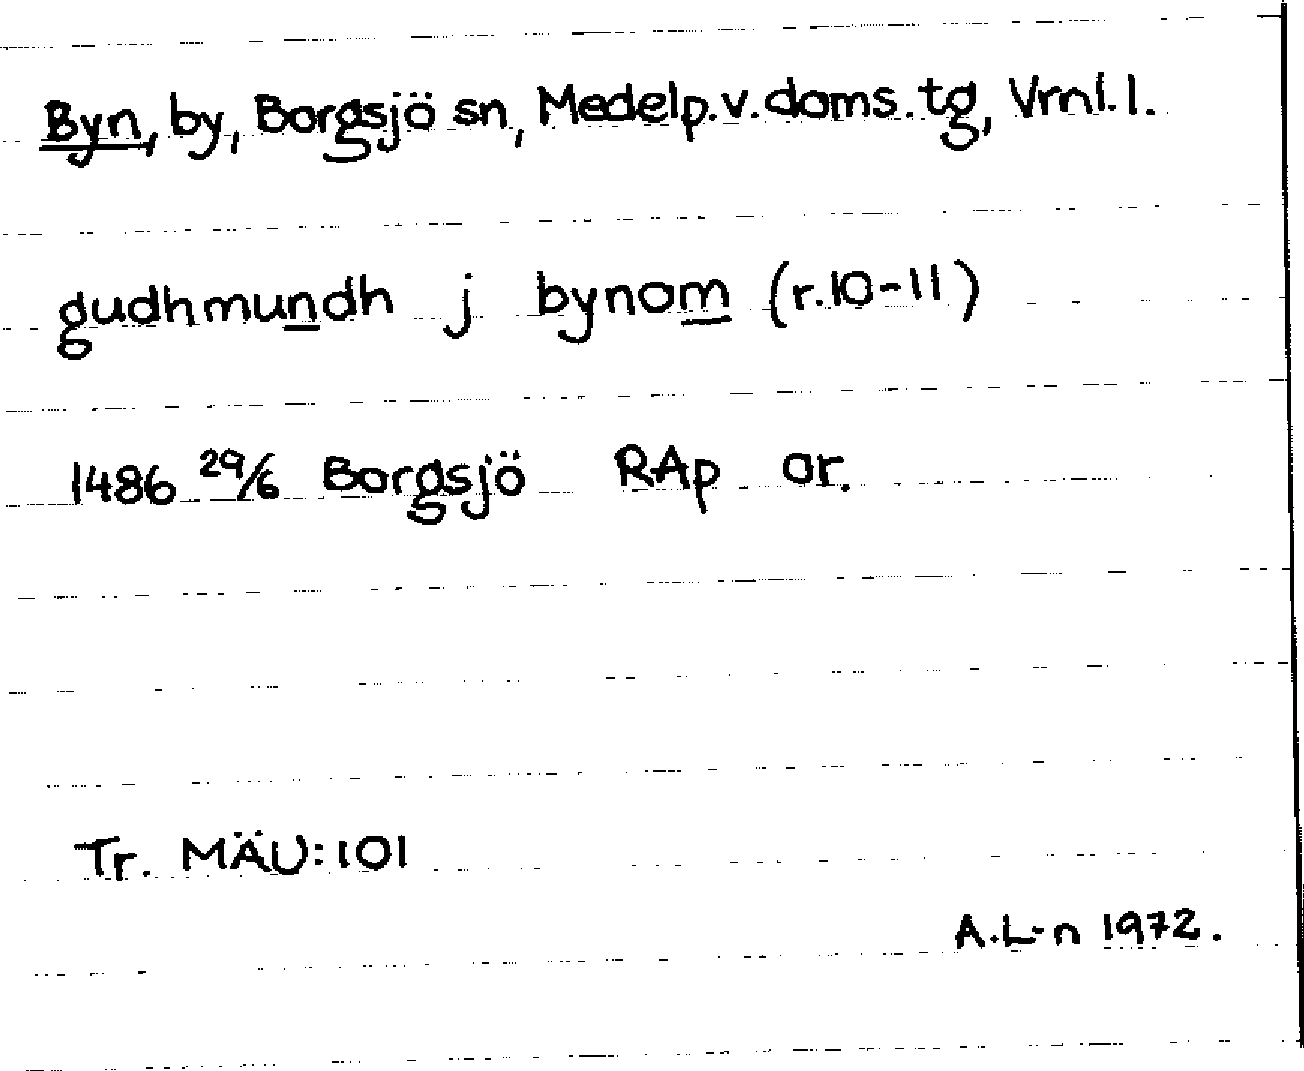 Byn, by, Borgsjö sn, Medelp.v.doms.tg, Vrnl.l.
gudhmundh j bynom (r.10-11)
1486 29/6 Borgsjö RAp or.
Tr. MÄU:101
A.L-n 1972.